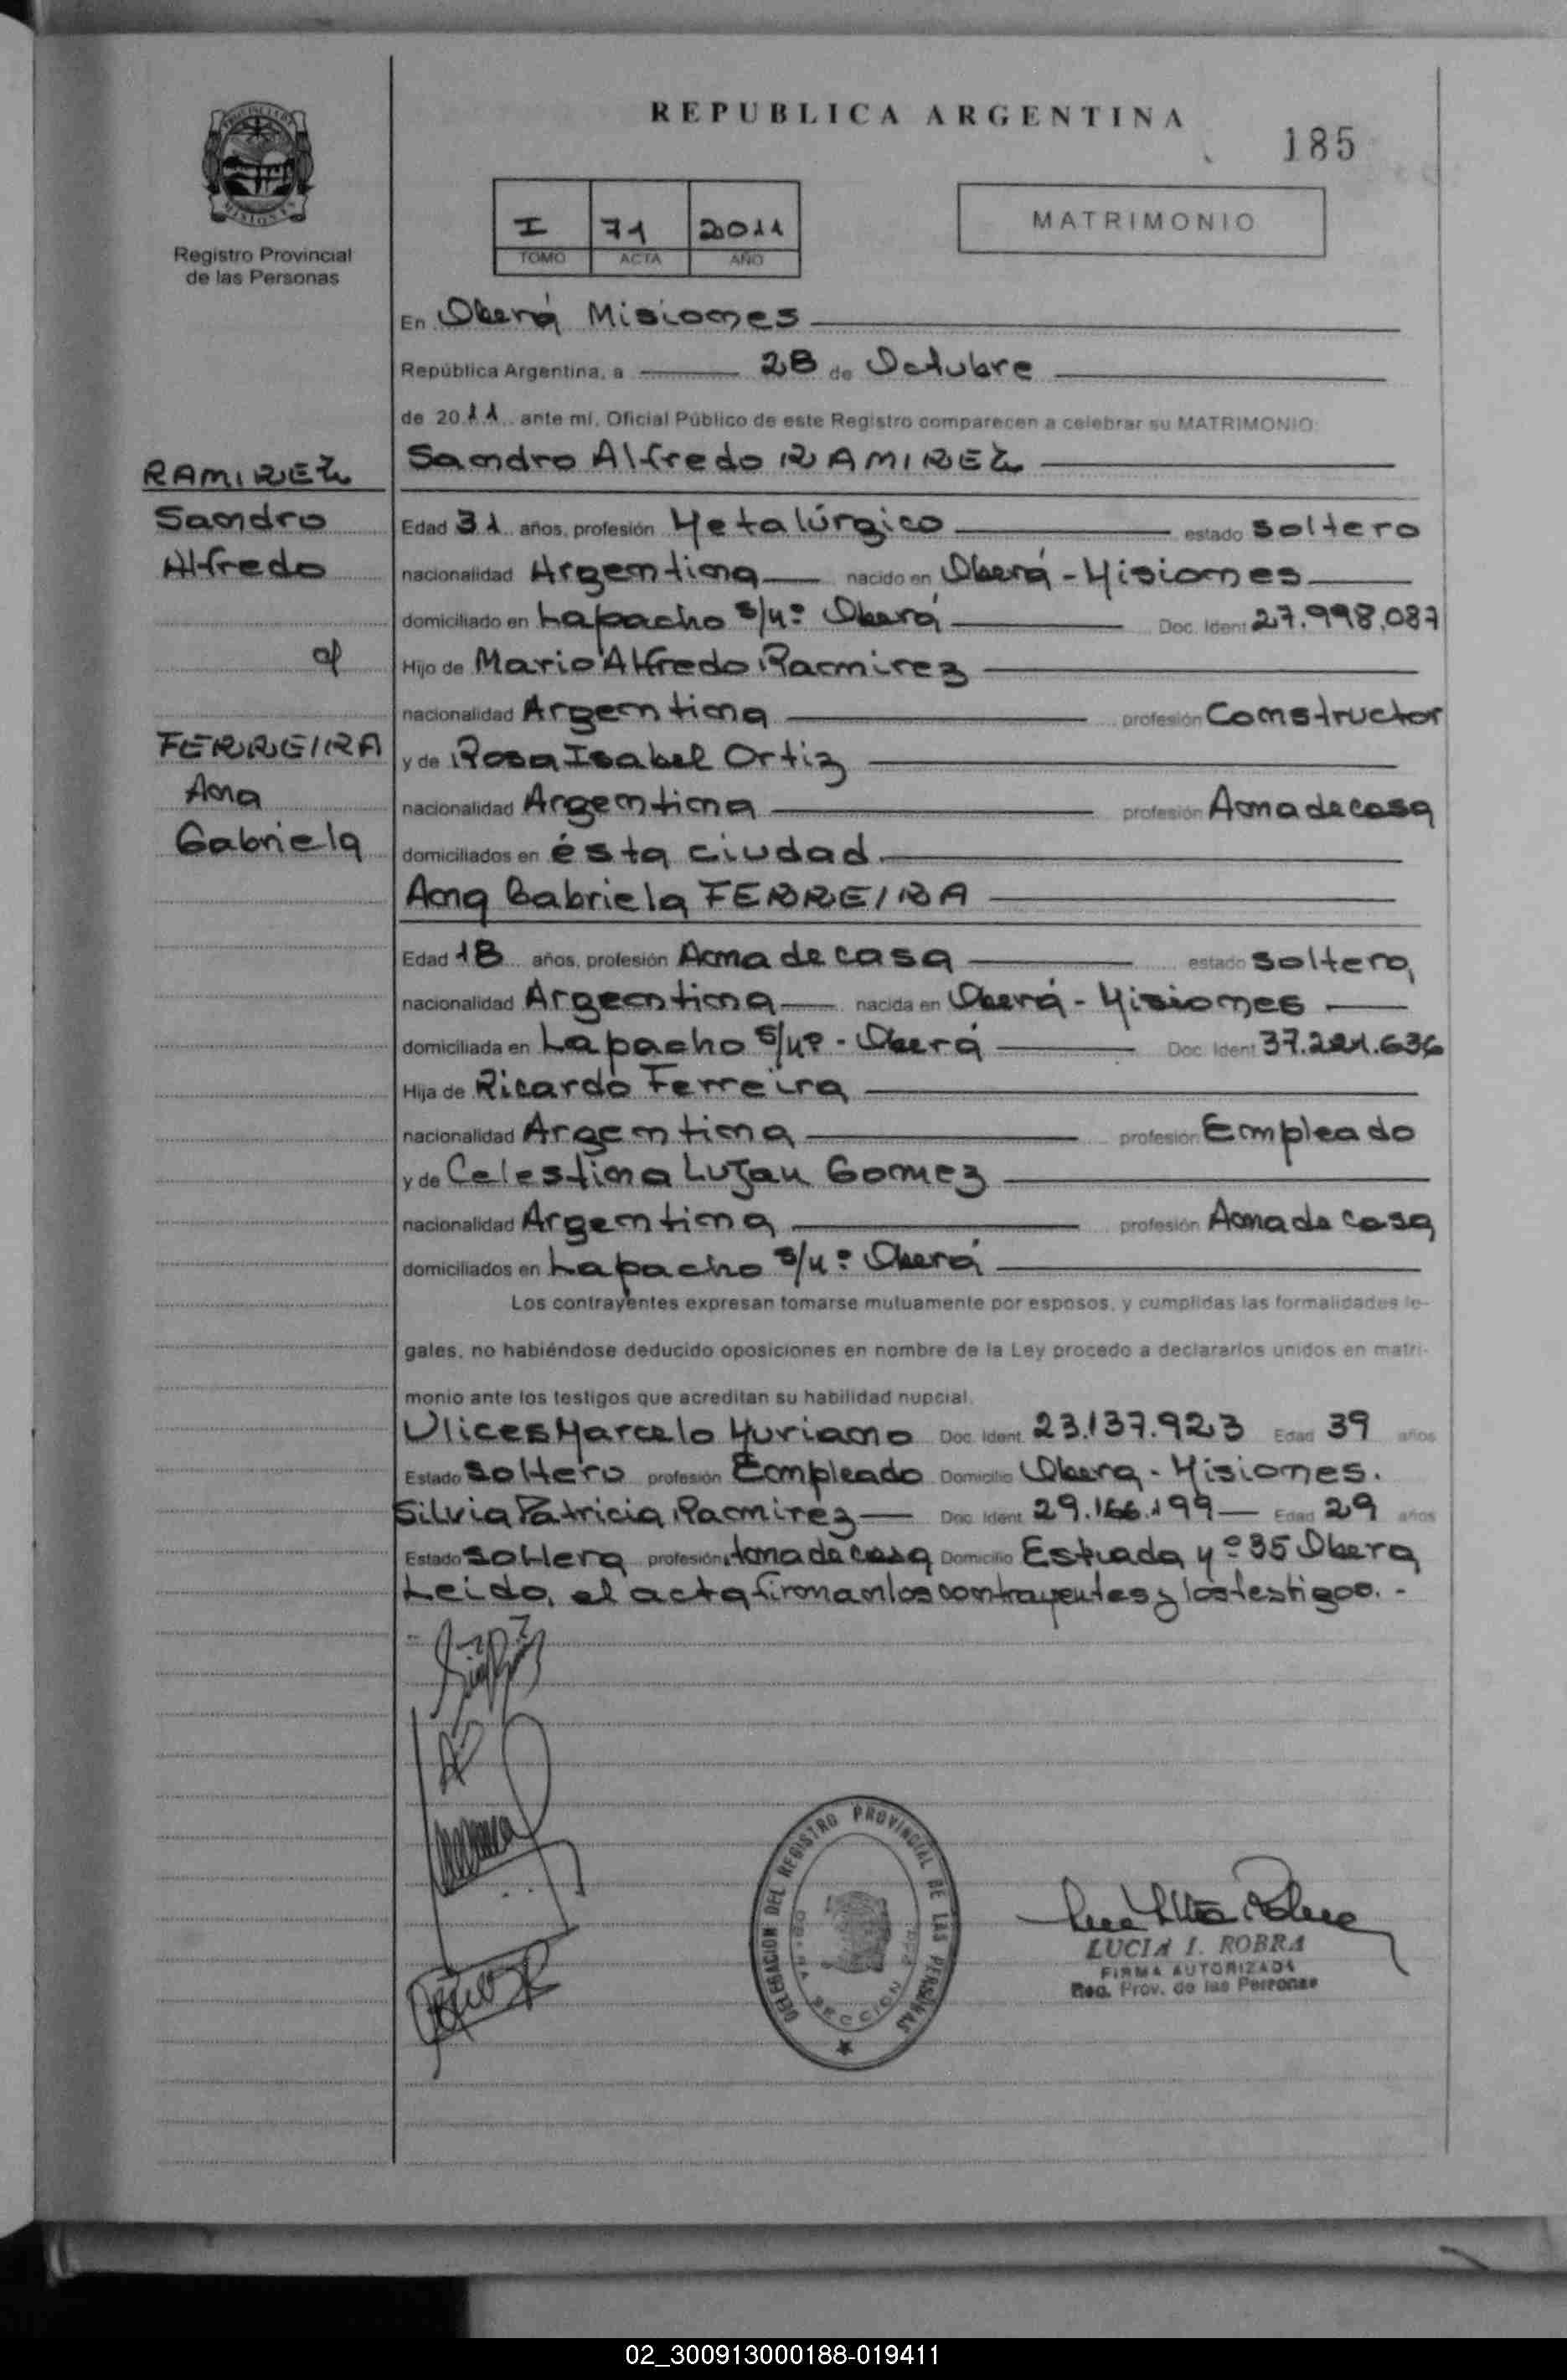 REPUBLICA ARGENTINA
185
I 71 2011
TOMO ACTA AÑO
MATRIMONIO
PROVINCIA DE
MISIONES
Registro Provincial
de las Personas
En Oberá Misiones
República Argentina, a 28 de Octubre
de 2011 ante mí, Oficial Público de este Registro comparecen a celebrar su MATRIMONIO:
Sandro Alfredo RAMIREZ
RAMIREZ
Sandro
Alfredo
c/
FERREIRA
Ana
Gabriela
Edad 31 años, profesión Metalúrgico estado soltero
nacionalidad Argentina nacido en Oberá - Misiones
domiciliado en Lapacho s/nº Oberá Doc. Ident 27.998.087
Hijo de Mario Alfredo Ramirez
nacionalidad Argentina profesión Constructor
y de Rosa Isabel Ortiz
nacionalidad Argentina profesión Ama de casa
domiciliados en ésta ciudad
Ana Gabriela FERREIRA
Edad 18 años, profesión Ama de casa estado soltera
nacionalidad Argentina nacida en Oberá - Misiones
domiciliada en Lapacho s/nº - Oberá Doc. Ident 37.221.636
Hija de Ricardo Ferreira
nacionalidad Argentina profesión Empleado
y de Celestina Lujan Gomez
nacionalidad Argentina profesión Ama de casa
domiciliados en Lapacho s/nº Oberá
Los contrayentes expresan tomarse mutuamente por esposos, y cumplidas las formalidades le-
gales, no habiéndose deducido oposiciones en nombre de la Ley procedo a declararlos unidos en matri-
monio ante los testigos que acreditan su habilidad nupcial.
Ulices Marcelo Muriano Doc. Ident. 23.137.923 Edad 39 años
Estado soltero profesión Empleado Domicilio Obera - Misiones.
Silvia Patricia Ramirez Doc. Ident. 29.166.199 Edad 29 años
Estado soltera profesión Ama de casa Domicilio Estrada Nº 35 Obera
Leido, el acta firman los contrayentes y los testigos. -
DELEGACION DEL REGISTRO PROVINCIAL DE LAS PERSONAS
SECCION
LUCIA I. ROBRA
FIRMA AUTORIZADA
Reg. Prov. de las Personas
02_300913000188-019411